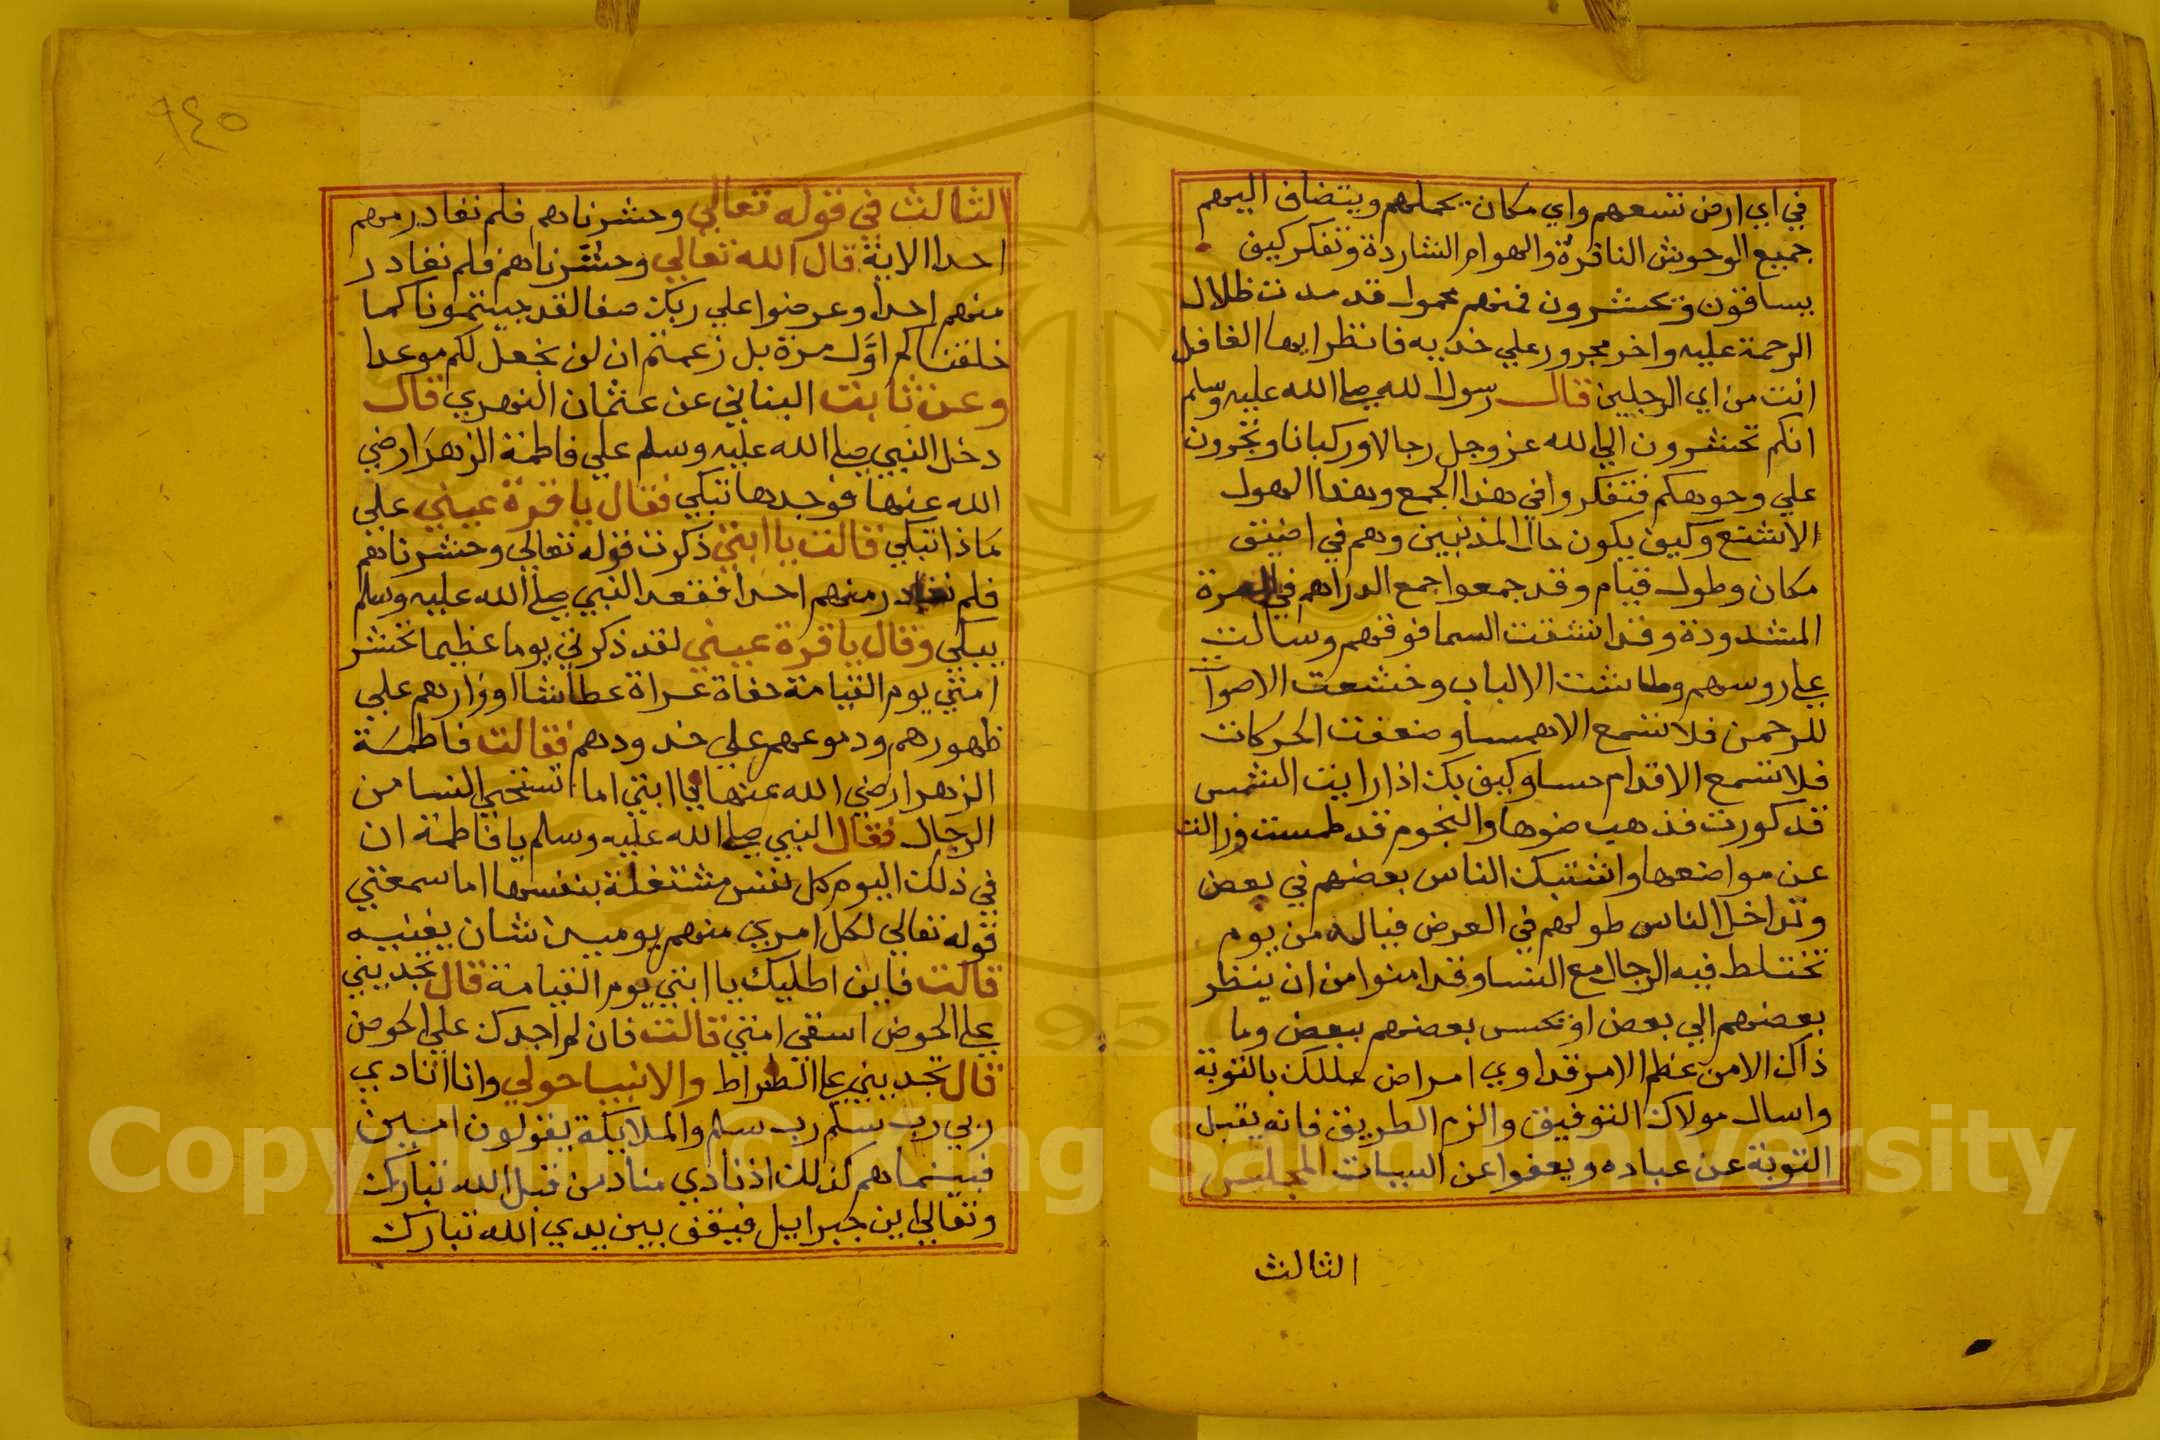 في اي ارض تسعهم واي مكان يحملهم ويتضاف اليهم
جميع الوحوش النافرة والهوام الشاردة وتفكر كيف
يساقون وتحشرون فمنهم محمول قد مدت ظلال
الرحمة عليه واخر مجرور علي خديه فانظر ايها الغافل
انت من اي الرجلين قال رسول الله صلي الله عليه وسلم
انكم تحشرون الي الله عز وجل رجالا وركبانا وتجرون
علي وجوهكم فتفكروا في هذا الجمع وهذا الهول
الاشنع وكيف يكون حال المذنبين وهم في اضيق
مكان وطول قيام وقد جمعوا جمع الدراهم في الصرة
المشدودة وقد انشقت السما فوقهم وسالت
علي روسهم وطاشت الالباب وخشعت الاصوات
للرحمن فلا تسمع الا همسا وضعفت الحركات
فلا تسمع الاقدام حسا وكيف بك اذا رايت الشمس
قد كورت فذهب ضوها والنجوم قد طمست وزالت
عن مواضعها واشتبك الناس بعضهم في بعض
وتداخل الناس طولهم في العرض فياله من يوم
تختلط فيه الرجال مع النسا وقد امنوا من ان ينظر
بعضهم الي بعض او تحس بعضهم ببعض وما
ذاك الامن عظم الامر فداوي امراض عللك بالتوبة
واسال مولاك التوفيق والزم الطريق فانه يقبل
التوبة عن عباده ويعفوا عن السيات المجلس
الثالث
٩٤٥
الثالث في قوله تعالي وحشرناهم فلم نغادر منهم
احدا الاية قال الله تعالي وحشرناهم فلم نغادر
منهم احدا وعرضوا علي ربك صفا لقد جيتمونا كما
خلقناكم اول مرة بل زعمتم ان لن نجعل لكم موعدا
وعن ثابت البناني عن عثمان النهري قال
دخل النبي صلي الله عليه وسلم علي فاطمة الزهرا رضي
الله عنها فوجدها تبكي فقال يا قرة عيني علي
ماذا تبكي قالت يا ابتي ذكرت قوله تعالي وحشرناهم
فلم نغادر منهم احدا فقعد النبي صلي الله عليه وسلم
يبكي وقال يا قرة عيني لقد ذكرتي يوما عظيما تحشر
امتي يوم القيامة حفاة عراة عطاشا اوزارهم علي
ظهورهم ودموعهم علي خدودهم فقالت فاطمة
الزهرا رضي الله عنها يا ابتي اما تستحي النسا من
الرجال فقال النبي صلي الله عليه وسلم يا فاطمة ان
في ذلك اليوم كل نفس مشتغلة بنفسها اما سمعتي
قوله تعالي لكل امري منهم يوميذ شان يغنيه
قالت فاين اطلبك يا ابتي يوم القيامة قال تجديني
علي الحوض اسقي امتي قالت فان لم اجدك علي الحوض
قال تجديني علي الصراط والانبيا حولي وانا انادي
ربي رب سلم رب سلم والملايكة يقولون امين
فبينماهم كذلك اذ نادي مناد من قبل الله تبارك
وتعالي اين جبراييل فيقف بين يدي الله تبارك
Copyright © King Saud University
1957